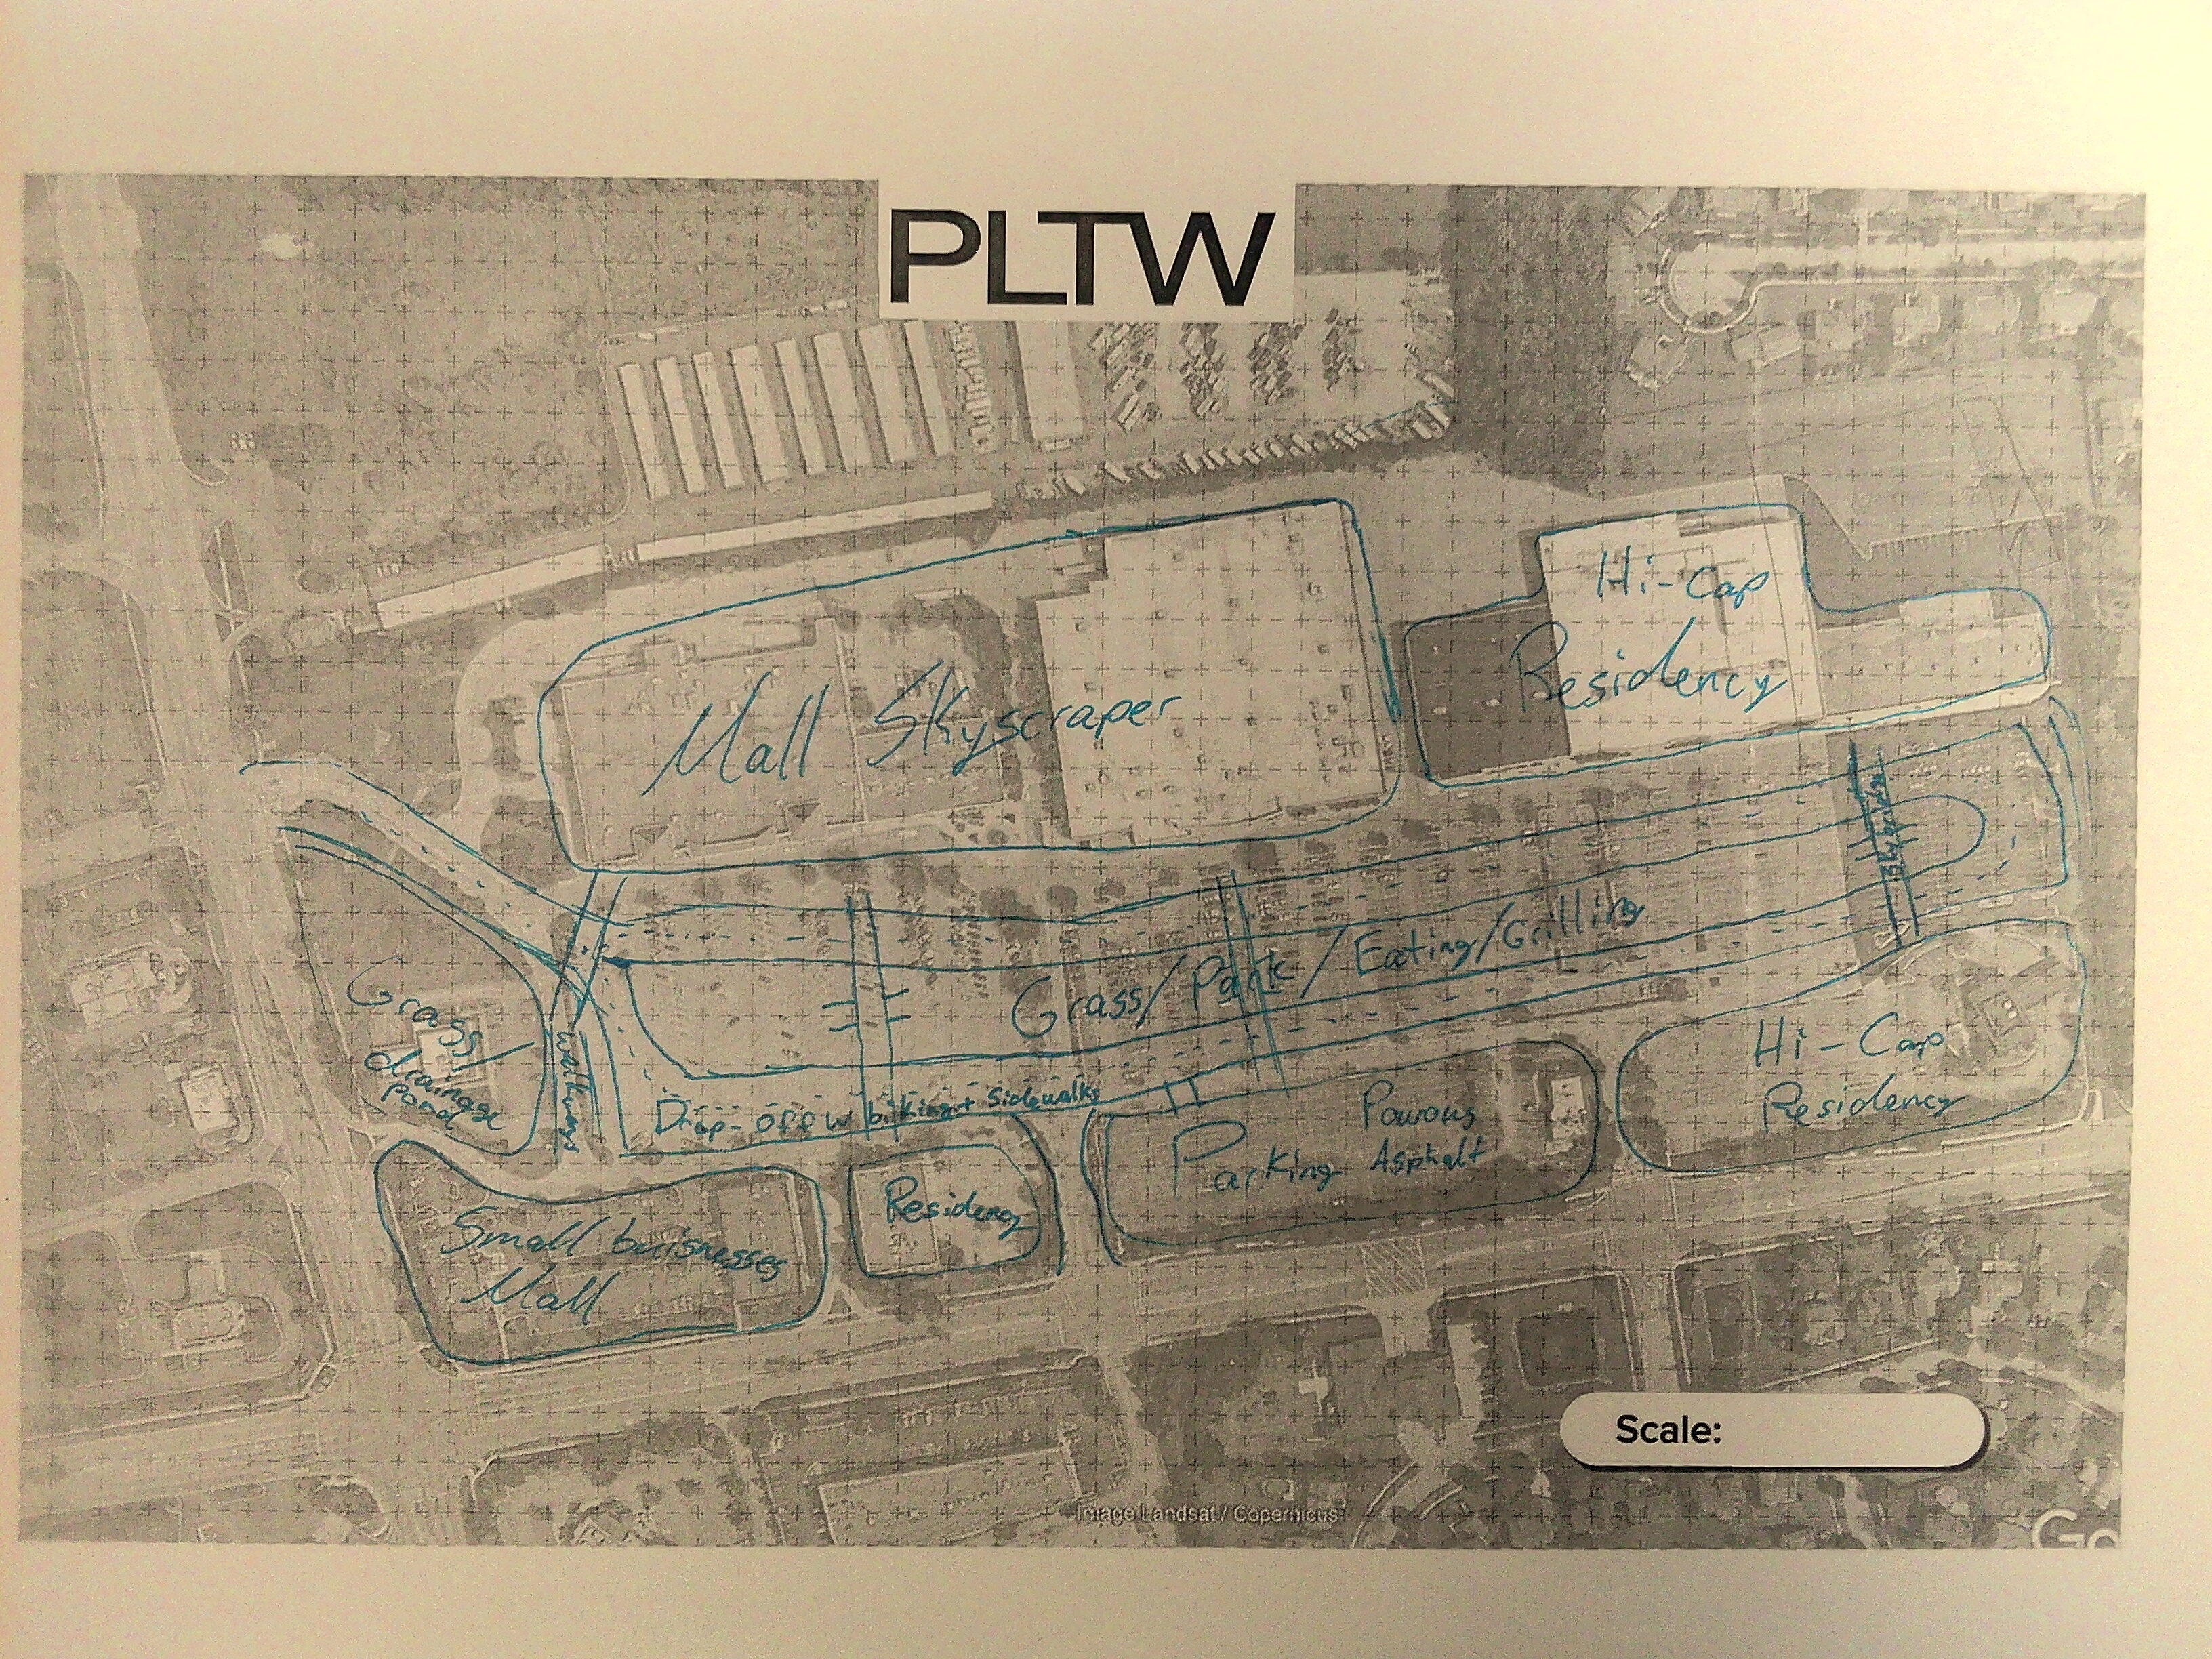 PLTW
Hi-Cap
Residency
Mall Skyscraper
Grass/Park/Eating/Grilling
Grass/
drainage
Pond
walkways
Drop-off w biking + Sidewalks
Hi-Cap
Residency
Parking
Powous
Asphalt
Residency
Small buisnesses
Mall
Scale:
Image Landsat / Copernicus
Go